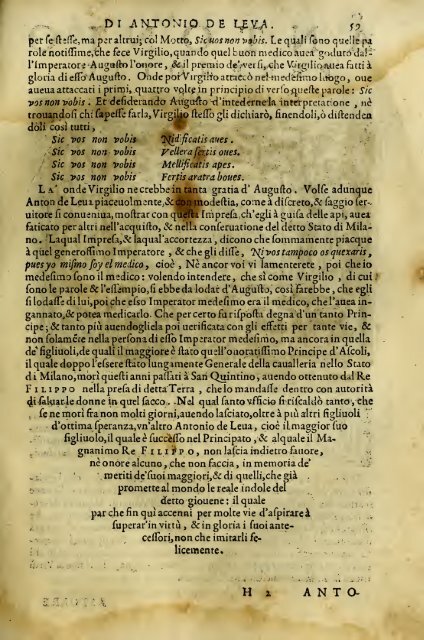 DI ANTONIO DE LEVA. 59
per se stesse, ma per altrui; col Motto, Sic uos non vobis. Le quali sono quelle pa
role notissime, che fece Virgilio, quando quel buon medico auea goduto dal-
l'Imperatore Augusto l'onore, & il premio de' versi, che Virgilio auea fatti à
gloria di esso Augusto. Onde poi Virgilio attaccò nel medesimo luogo, oue
aueua attaccati i primi, quattro volte in principio di verso queste parole: Sic
vos non vobis. Et desiderando Augusto d'intederne la interpretatione, nè
trouandosi chi sapesse farla, Virgilio stesso gli dichiarò, finendoli, ò distenden
doli così tutti,
Sic vos non vobis Nidificatis aues.
Sic vos non vobis Vellera fertis oues.
Sic vos non vobis Mellificatis apes.
Sic vos non vobis Fertis aratra boues.
LA' onde Virgilio ne crebbe in tanta gratia d'Augusto. Volse adunque
Anton de Leua piaceuolmente, & con modestia, come à discreto, & saggio ser-
uitore si conueniua, mostrar con questa Impresa, ch'egli à guisa delle api, auea
faticato per altri nell'acquisto, & nella conseruatione del detto Stato di Mila-
no. Laqual Impresa, & laqual'accortezza, dicono che sommamente piacque
à quel generosissimo Imperatore, & che gli disse, Ni vos tampoco os quexaris,
pues yo mismo soy el medico, cioè, Nè ancor voi vi lamenterete, poi che io
medesimo sono il medico: volendo intendere, che sì come Virgilio, di cui
sono le parole & l'essempio, si ebbe da lodar d'Augusto, così farebbe, che egli
si lodasse di lui, poi che esso Imperator medesimo era il medico, che l'auea in-
gannato, & potea medicarlo. Che per certo fu risposta degna d'un tanto Prin-
cipe; & tanto più auendogliela poi uerificata con gli effetti per tante vie, &
non solamẽte nella persona di esso Imperator medesimo, ma ancora in quella
de' figliuoli, de quali il maggiore è stato quell'onoratissimo Principe d'Ascoli,
il quale doppo l'essere stato lungamente Generale della caualleria nello Stato
di Milano, morì questi anni passati à San Quintino, auendo ottenuto dal Re
FILIPPO nella presa di detta Terra, che lo mandasse dentro con autorità
di saluar le donne in quel sacco. Nel qual santo vfficio si riscaldò tanto, che
se ne morì fra non molti giorni, auendo lasciato, oltre à più altri figliuoli
d'ottima speranza, vn'altro Antonio de Leua, cioè il maggior suo
figliuolo, il quale è successo nel Principato, & al quale il Ma-
gnanimo Re FILIPPO, non lascia indietro fauore,
nè onore alcuno, che non faccia, in memoria de'
meriti de' suoi maggiori, & di quelli, che già
promette al mondo le reale indole del
detto giouene: il quale
par che fin quì accenni per molte vie d'aspirare à
superar'in virtù, & in gloria i suoi ante-
cessori, non che imitarli fe-
licemente.
H 2 ANTO-